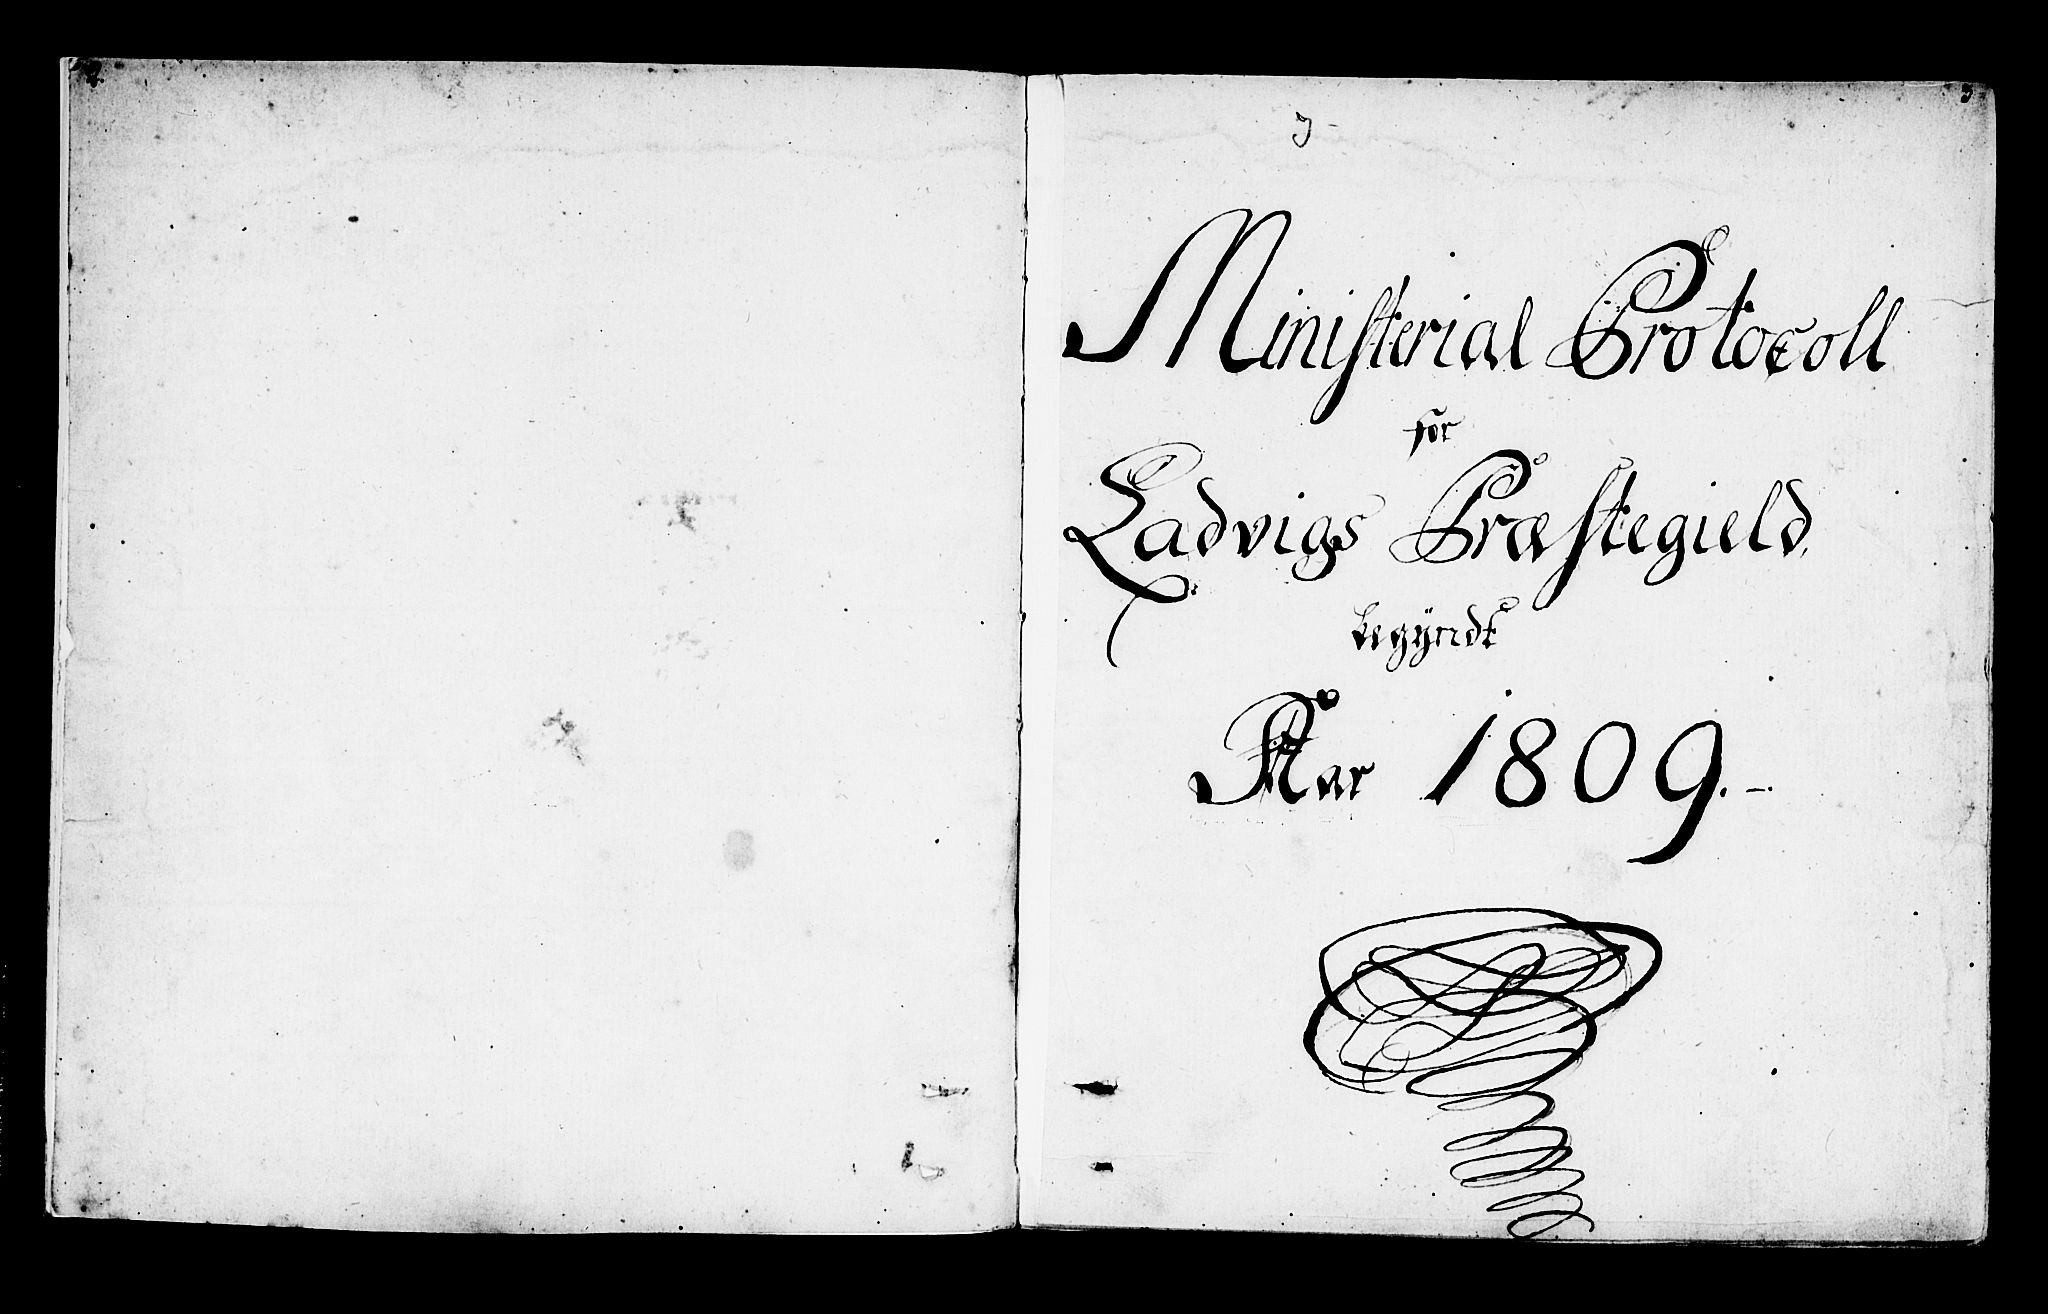 Ministerial Protocoll
for
Ladvigs Præstegield
begyndt
Aar 1809.-